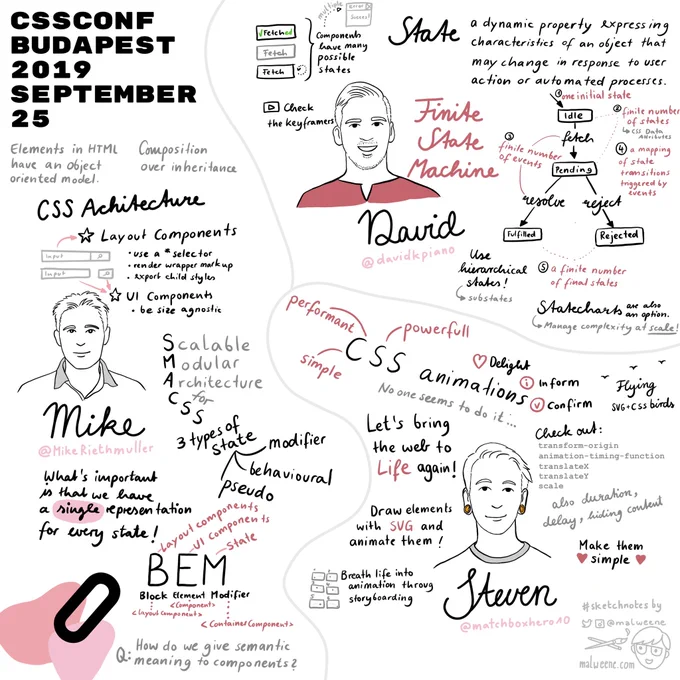 CSSCONF
BUDAPEST
2019
SEPTEMBER
25
Elements in HTML
have an object
oriented model.
Composition
over inheritance
CSS Achitecture
Layout Components
• use a * selector
• render wrapper markup
• export child styles
Input
Input
UI Components
• be size agnostic
Mike
@MikeRiethmuller
Scalable
Modular
Architecture
for
CSS
3 types of
state
modifier
behavioural
pseudo
What's important
is that we have
a single representation
for every state!
Layout components
UI Components
State
BEM
Block Element Modifier
<Component>
<Layout Component>
<Container Component>
Q: How do we give semantic
meaning to components?
multiple
Error
Success!
√Fetched
Fetch
Fetch
Components
have many
possible
states
Check
the keyframers
State
a dynamic property expressing
characteristics of an object that
may change in response to user
action or automated processes.
Finite
State
Machine
David
@davidkpiano
① one initial state
② finite number
of states
CSS Data
Attributes
③
finite number
of events
④ a mapping
of state
transitions
triggered by
events
Idle
fetch
Pending
resolve
reject
Fulfilled
Rejected
⑤ a finite number
of final states
Use
hierarchical
states!
substates
Statecharts are also
an option.
Manage complexity at scale!
performant
powerfull
simple
CSS animations
No one seems to do it...
Delight
i Inform
Confirm
Flying
SVG+CSS birds
Let's bring
the web to
Life again!
Draw elements
with SVG and
animate them!
Breath life into
animation throug
storyboarding
Check out:
transform-origin
animation-timing-function
translateX
translateY
scale
also duration,
delay, hiding content
Make them
simple
Steven
@matchboxhero10
#sketchnotes by
@malweene
malweene.com